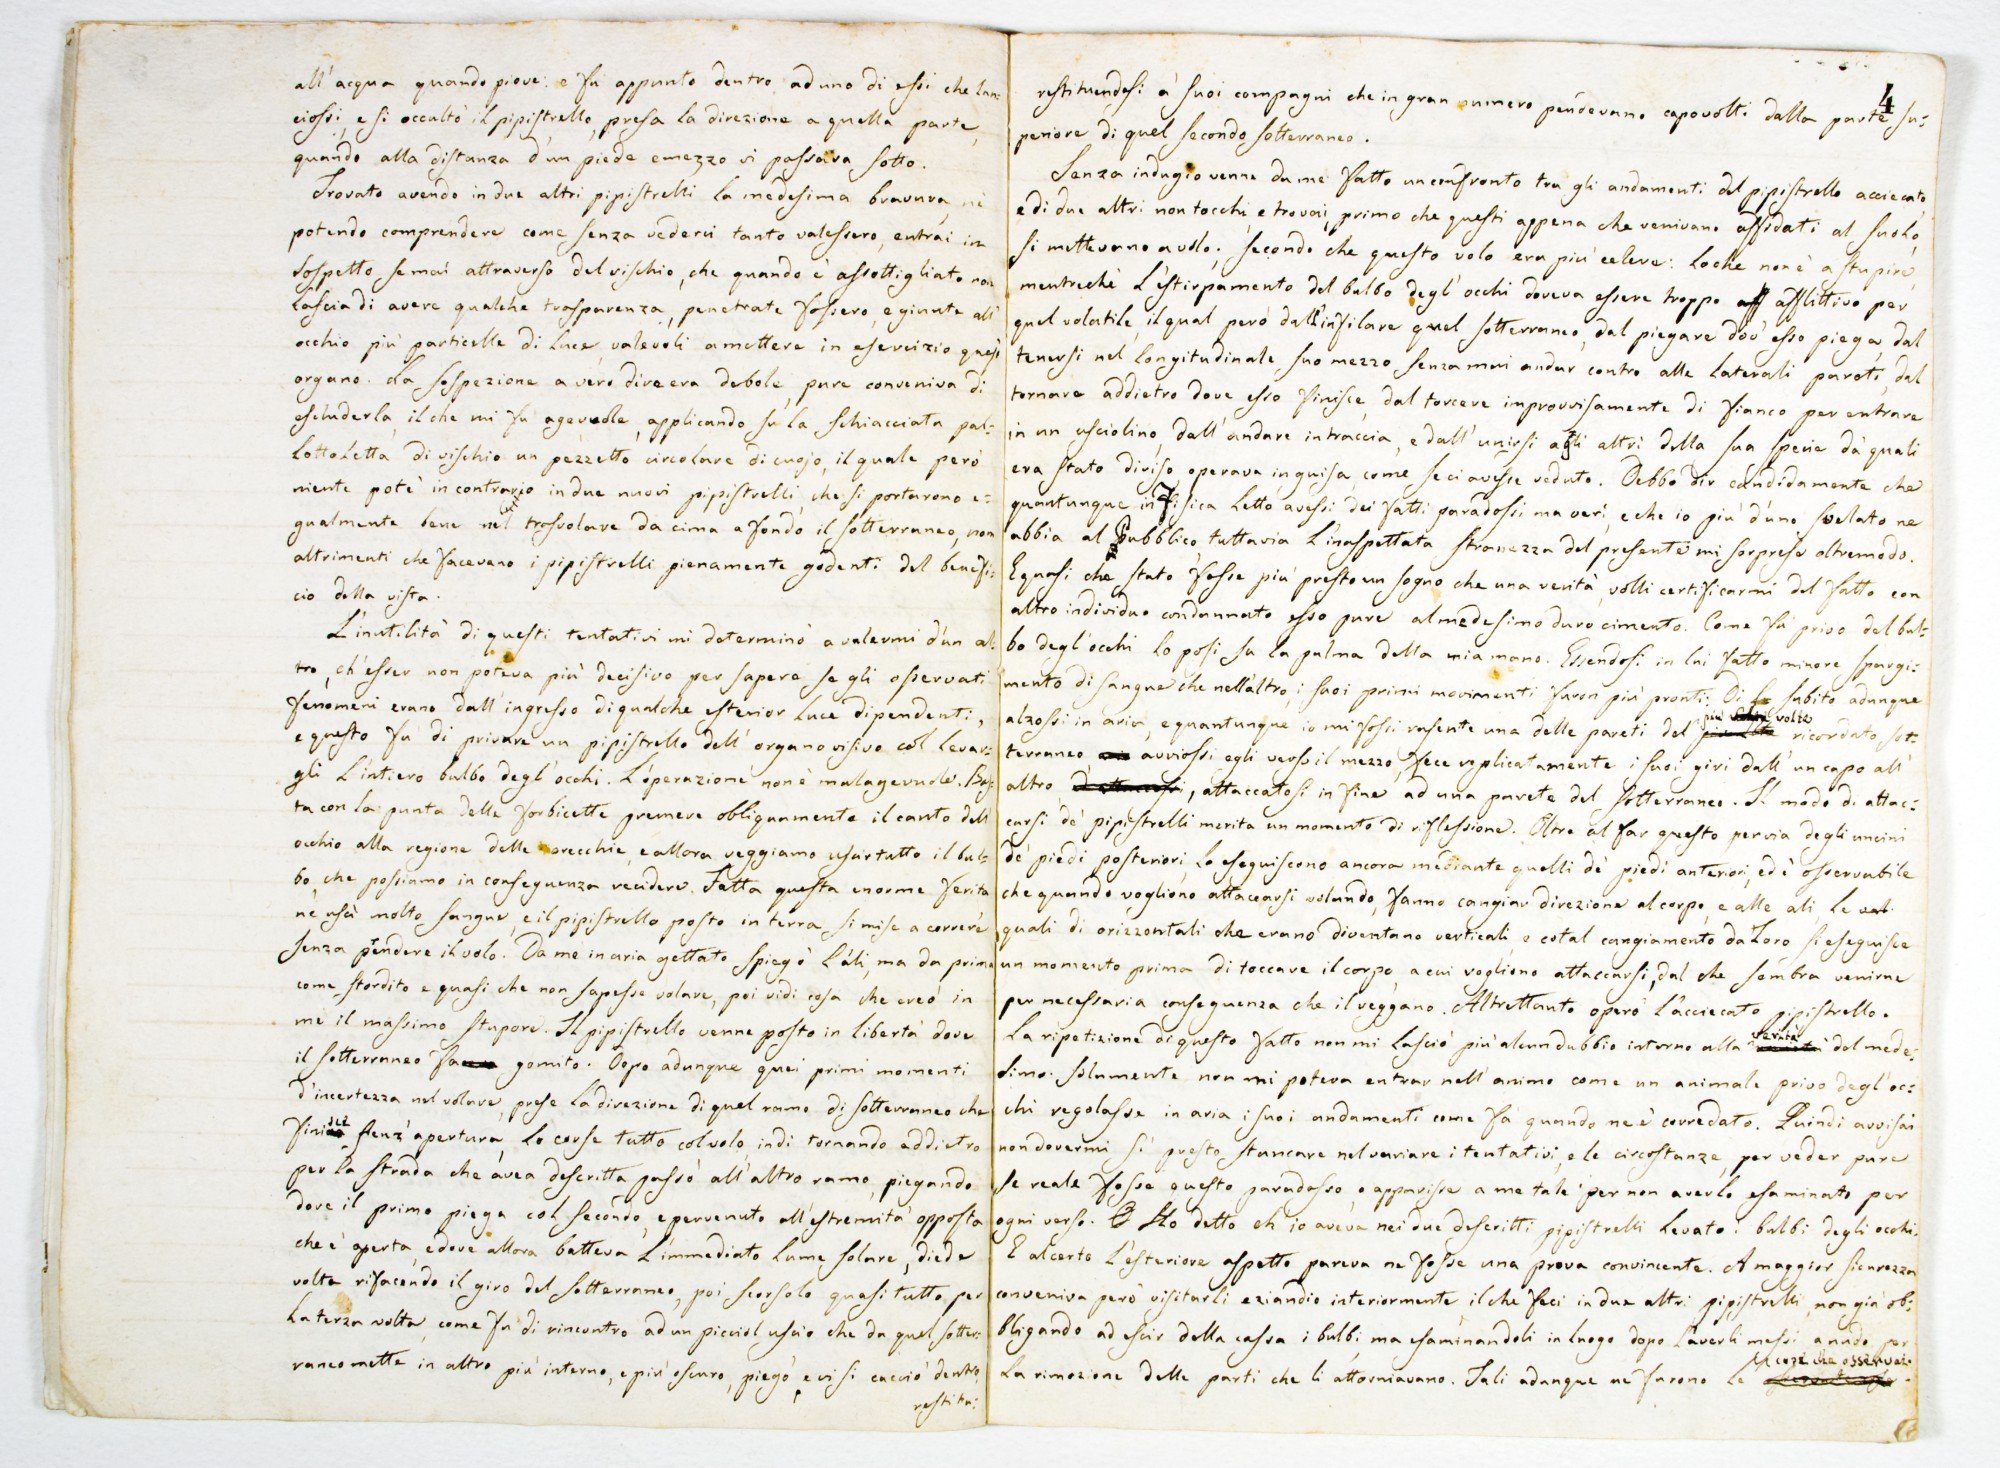 all'acqua quando piove: e fu appunto dentro ad uno di essi che lan-
ciossi, e si occultò il pipistrello, presa la direzione a quella parte,
quando alla distanza d'un piede e mezzo vi passava sotto.
Trovato avendo in due altri pipistrelli la medesima bravura, nè
potendo comprendere come senza vederci tanto valessero, entrai in
sospetto se mai attraverso del vischio, che quando è assottigliato non
lascia di avere qualche trasparenza, penetrate fossero, e giunte all'
occhio più particelle di luce valevoli a mettere in esercizio quest'
organo. La sospezione a vero dire era debole, pure conveniva di
escluderla, il che mi fu agevole, applicando su la schiacciata pal-
lottoletta di vischio un pezzetto circolare di cuojo, il quale però
niente potè in contrario in due nuovi pipistrelli, che si portarono e-
gualmente bene nel trasvolare da cima a fondo il sotterraneo, non
altrimenti che facevano i pipistrelli pienamente godenti del benefi-
cio della vista.
L'inutilità di questi tentativi mi determinò a valermi d'un al-
tro, ch'esser non poteva più decisivo per sapere se gli osservati
fenomeni erano dall'ingresso di qualche esterior luce dipendenti,
e questo fu di privare un pipistrello dell'organo visivo col levar-
gli l'intiero bulbo degl'occhi. L'operazione non è malagevole. Bas-
ta con la punta delle forbicette premere obliquamente il canto dell'
occhio alla regione delle orecchie, e allora veggiamo uscir tutto il bul-
bo, che possiamo in conseguenza recidere. Fatta questa enorme ferita
nè uscì molto sangue, e il pipistrello posto in terra si mise a correre
senza prendere il volo. Da me in aria gettato spiegò l'ali, ma da prima
come stordito e quasi che non sapesse volare, poi vidi cosa che creò in
me il massimo stupore. Il pipistrello venne posto in libertà dove
il sotterraneo fa gomito. Dopo adunque quei primi momenti
d'incertezza nel volare, prese la direzione di quel ramo di sotterraneo che
finisce senz'apertura, lo corse tutto col volo, indi tornando addietro
per la strada che avea descritta passò all'altro ramo, piegando
dove il primo piega col secondo, e pervenuto all'estremità opposta
che è aperta, e dove allora batteva l'immediato lume solare, diede
volta rifacendo il giro del sotterraneo, poi scorsolo quasi tutto per
la terza volta, come fu di rincontro ad un picciol uscio che da quel sotter-
raneo mette in altro più interno, e più oscuro, piegò, e vi si cacciò dentro,
restitu-
4
restituendosi a' suoi compagni che in gran numero pendevano capovolti dalla parte su-
periore di quel secondo sotterraneo.
Senza indugio venne da me fatto un confronto tra gli andamenti del pipistrello acciecato,
e di due altri non tocchi, e trovai, primo che questi appena che venivano affidati al suolo,
si mettevano a volo; secondo che questo volo era più celere: loche non è a stupire,
mentrechè l'estirpamento del bulbo degl'occhi doveva essere troppo afflittivo per
quel volatile, il qual però dall'infilare quel sotterraneo, dal piegare dov'esso piega, dal
tenersi nel longitudinale suo mezzo senza mai andar contro alle laterali pareti, dal
tornare addietro dove esso finisce, dal torcere improvvisamente di fianco per entrare
in un usciolino, dall'andare in traccia, e dall'unirsi agli altri della sua specie da' quali
era stato diviso, operava in guisa, come se ci avesse veduto. Debbo dir candidamente che
quantunque in Fisica letto avessi dei fatti paradossi ma veri, e che io più d'uno svelato ne
abbia al Pubblico, tuttavia l'inaspettata stranezza del presente mi sorprese oltremodo.
E quasi che stato fosse più presto un sogno che una verità, volli certificarmi del fatto con
altro individuo condannato esso pure al medesimo duro cimento. Come fu privo del bul-
bo degl'occhi lo posi su la palma della mia mano. Essendosi in lui fatto minore spargi-
mento di sangue che nell'altro, i suoi primi movimenti furon più pronti. Di subito adunque
alzossi in aria, e quantunque io mi fossi rasente una delle pareti del più volte ricordato sot-
terraneo, avviossi egli verso il mezzo, fece replicatamente i suoi giri dall'un capo all'
altro, attaccatosi in fine ad una parete del sotterraneo. Il modo di attac-
carsi de' pipistrelli merita un momento di riflessione. Oltre al far questo per via degli uncini
de' piedi posteriori, lo eseguiscono ancora mediante quelli de' piedi anteriori, ed è osservabile
che quando vogliono attaccarsi volando, fanno cangiar direzione al corpo, e alle ali, le
quali di orizzontali che erano diventano verticali, e cotal cangiamento da loro si eseguisce
un momento prima di toccare il corpo a cui vogliono attaccarsi, dal che sembra venirne
per necessaria conseguenza che il veggano. Altrettanto operò l'acciecato pipistrello.
La ripetizione di questo fatto non mi lasciò più alcun dubbio intorno alla verità del mede-
simo. Solamente non mi poteva entrar nell'animo come un animale privo degl'oc-
chi regolasse in aria i suoi andamenti come fa quando ne è corredato. Quindi avvisai
non dovermi sì presto stancare nel variare i tentativi, e le circostanze, per veder pure
se reale fosse questo paradosso, o apparisse a me tale per non averlo esaminato per
ogni verso. Ho detto ch'io aveva nei due descritti pipistrelli levato i bulbi degli occhi.
E al certo l'esteriore aspetto pareva ne fosse una prova convincente. A maggior sicurezza
conveniva però visitarli eziandio interiormente, il che feci in due altri pipistrelli, non già ob-
bligando ad escir della cassa i bulbi, ma esaminandoli in luogo dopo l'averli messi a nudo per
la rimozione delle parti che li attorniavano. Tali adunque ne furono le cose che osservai.